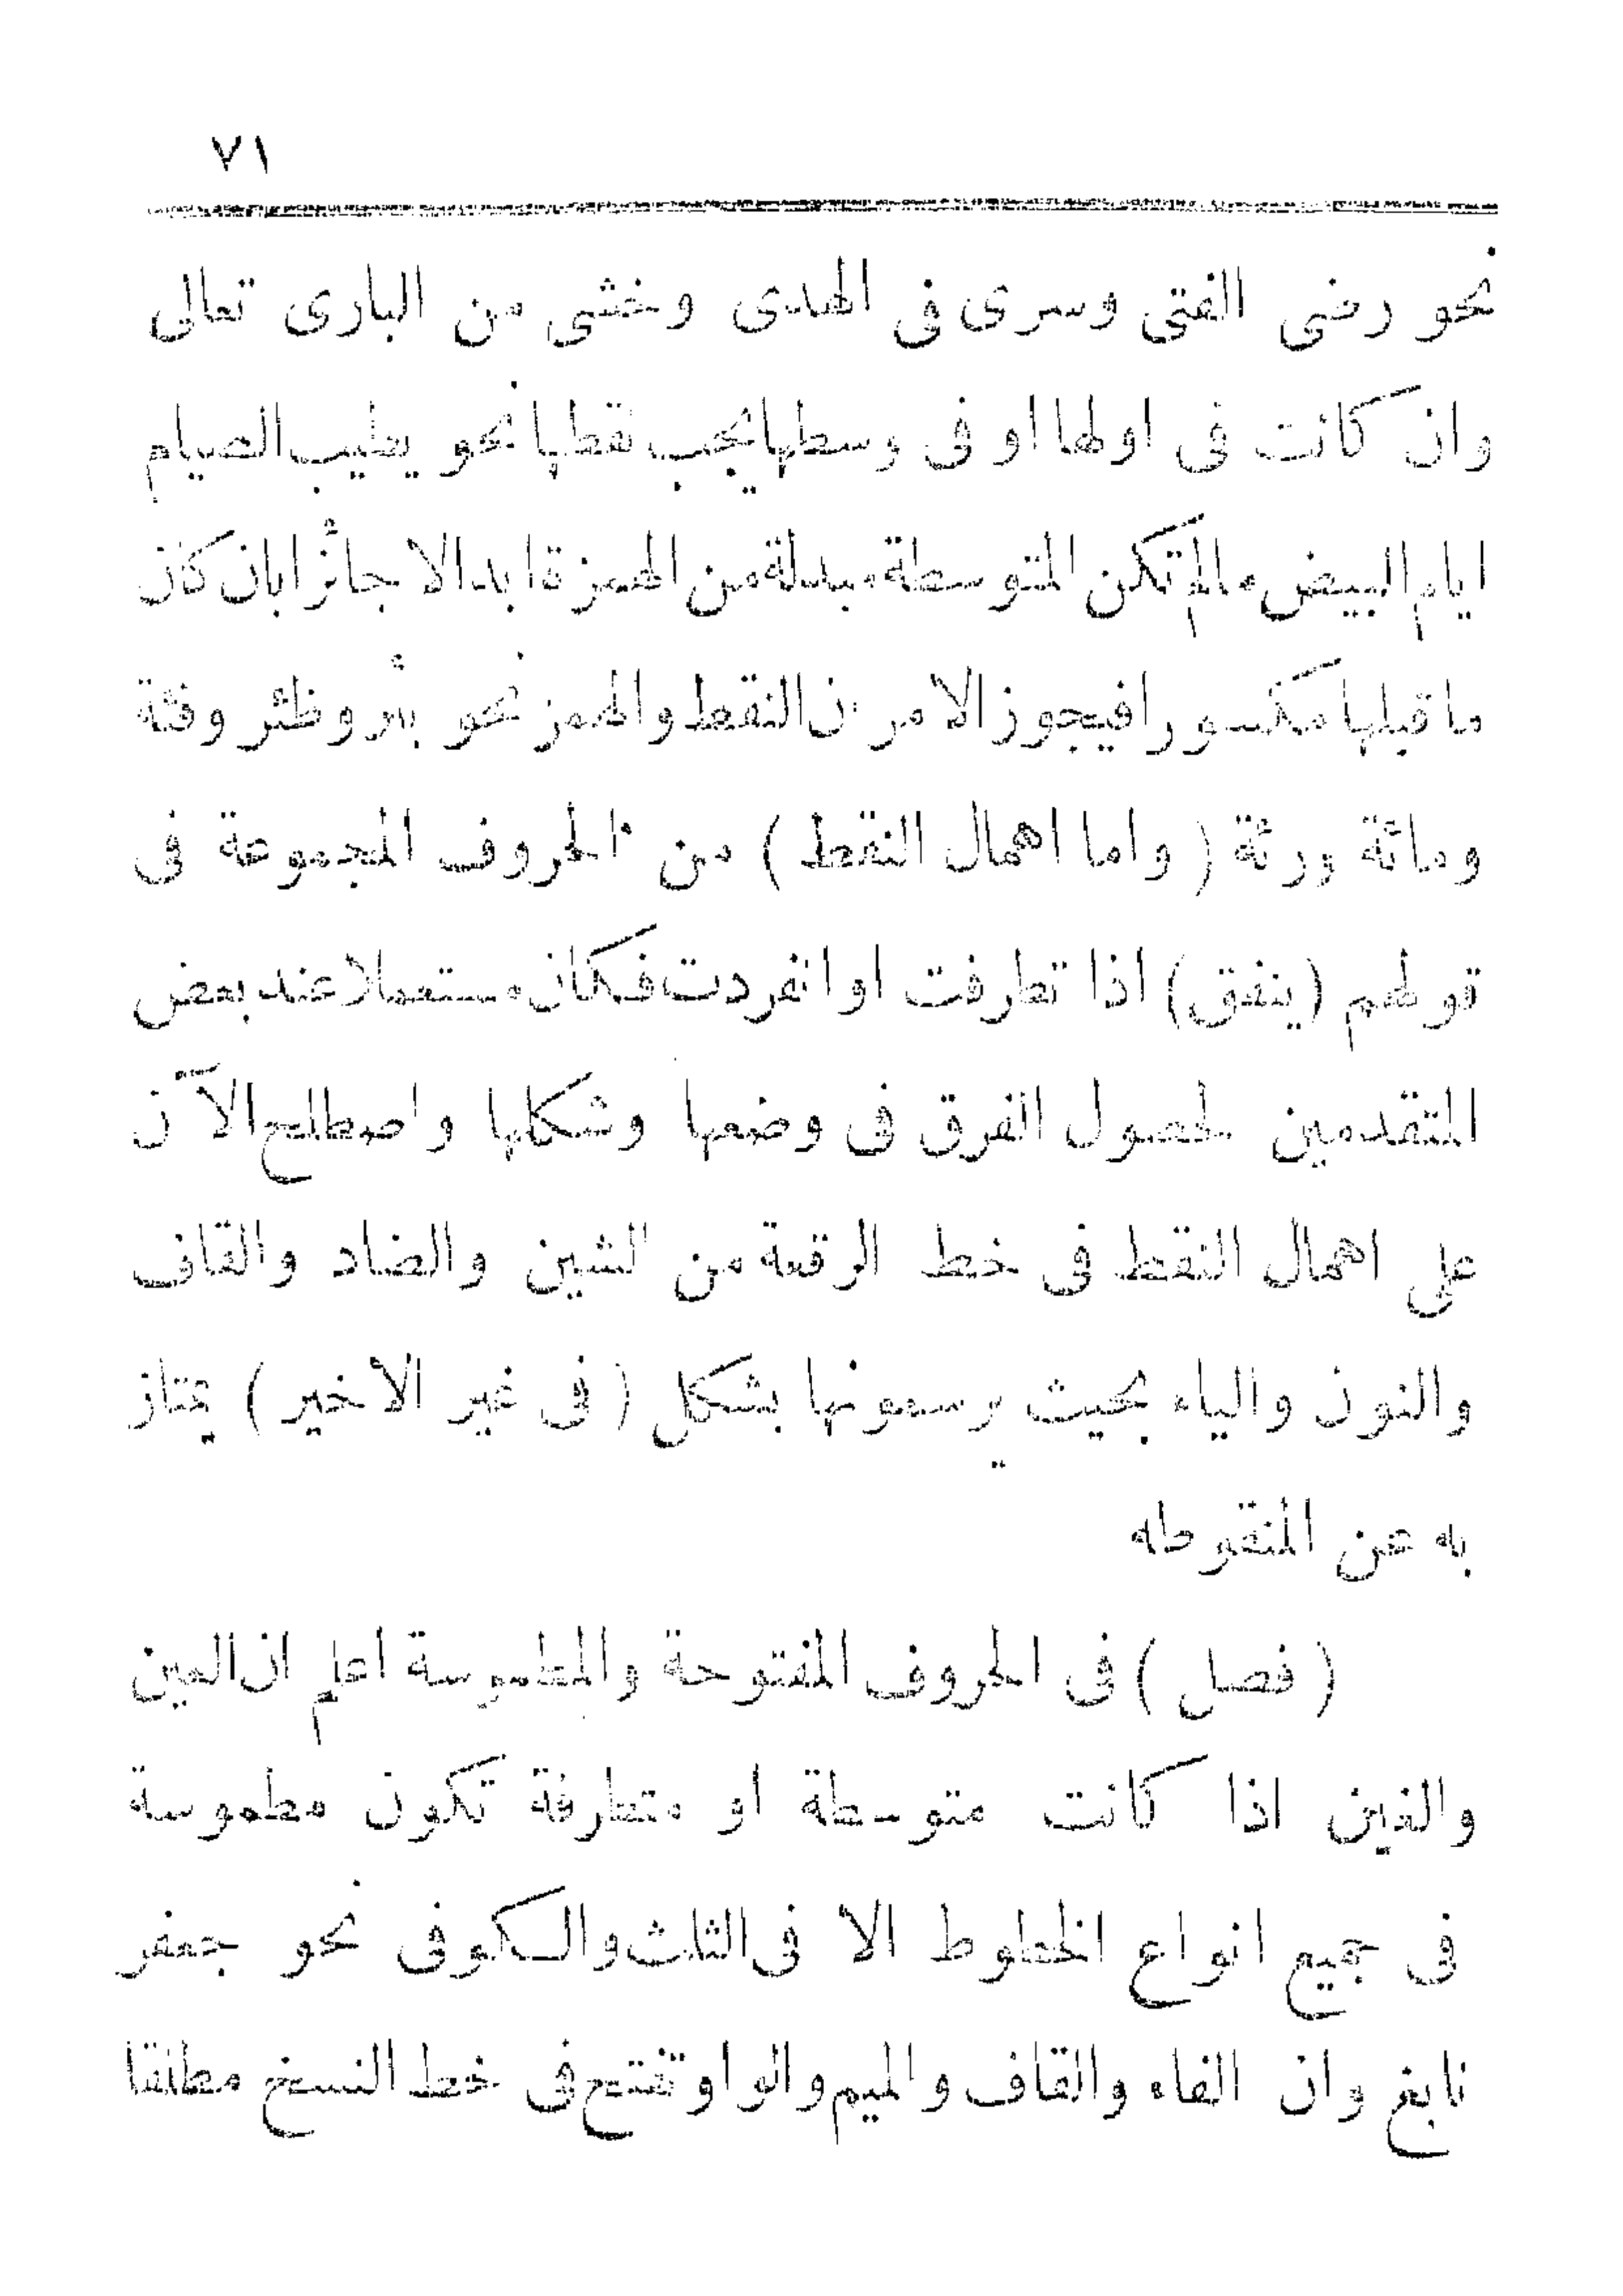 ٧١
نحو رضى الفتى وسرى فى الهدى وخشى من البارى تعالى
وان كانت فى اولها او فى وسطها يجب نقطها نحو يطيب الصيام
ايام البيض مالم تكن المتوسطة مبدلة من الهمزة ابدالا جائزا بان كان
ما قبلها مكسورا فيجوز الامران النقط والهمز نحو بئر وظئر وفئة
ومائة ورئة ( واما اهمال النقط ) من الحروف المجموعة فى
قولهم (ينفق) اذا تطرفت او انفردت فكان مستعملا عند بعض
المتقدمين لحصول الفرق فى وضعها وشكلها واصطلح الآن
على اهمال النقط فى خط الرقعة من الشين والضاد والقاف
والنون والياء بحيث يرسمونها بشكل ( فى غير الاخير ) يمتاز
به عن المنقوطه
( فصل ) فى الحروف المفتوحة والمطموسة اعلم ان العين
والغين اذا كانت متوسطة او متطرفة تكون مطموسة
فى جميع انواع الخطوط الا فى الثلث والكوفى نحو جعفر
نابغ وان الفاء والقاف والميم والواو تفتح فى خط النسخ مطلقا